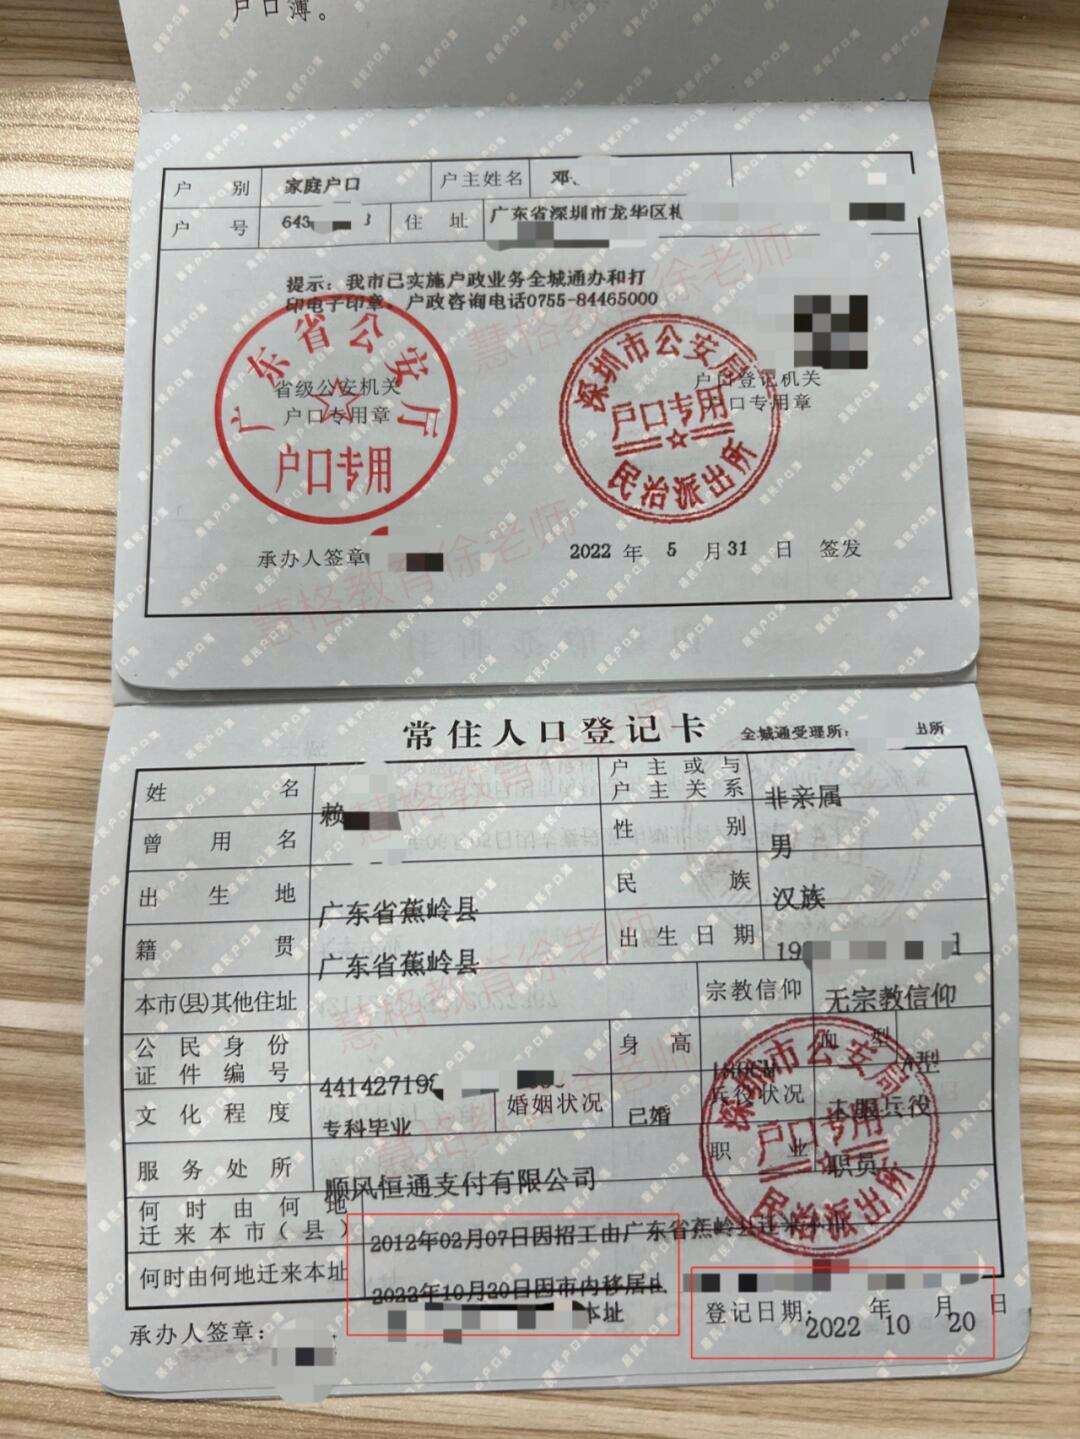 户口簿。
户 别 家庭户口 户主姓名 邓
户 号 643 住 址 广东省深圳市龙华区
提示：我市已实施户政业务全城通办和打
印电子印章，户政咨询电话0755-84465000
广东省公安厅
户口专用
省级公安机关
户口专用章
深圳市公安局
户口专用
民治派出所
户口登记机关
户口专用章
承办人签章
2022 年 5 月 31 日 签发
慧格教育徐老师
常住人口登记卡 全城通受理所： 出所
姓 名 赖 户主或与户主关系 非亲属
曾用名 性 别 男
出生地 广东省蕉岭县 民 族 汉族
籍 贯 广东省蕉岭县 出生日期 19
本市(县)其他住址 宗教信仰 无宗教信仰
公民身份证件编号 44142719 身 高 180CM 血 型 A型
文化程度 专科毕业 婚姻状况 已婚 兵役状况 未服兵役
服务处所 顺风恒通支付有限公司 职 业 职员
何时由何地迁来本市(县) 2012年02月07日因招工由广东省蕉岭县迁来本市
何时由何地迁来本址 2022年10月20日因市内移居由
本址
深圳市公安局
户口专用
民治派出所
承办人签章： 登记日期： 2022 年 10 月 20 日